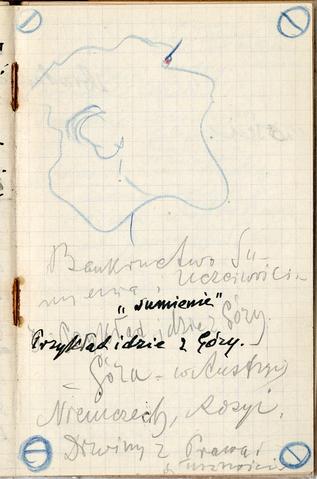 Bankructwo Su-
mienia, Uczciwości
„sumienie”
Przykład idzie z Góry.
Przykład idzie z Góry.
– Góra – w Austryi
Niemczech, Rosyi,
Drwiny z Prawa i